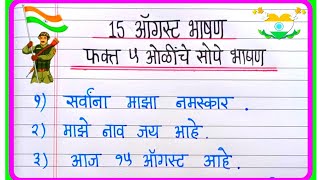 15 ऑगस्ट भाषण
फक्त ५ ओळींचे सोपे भाषण
१) सर्वांना माझा नमस्कार .
२) माझे नाव जय आहे .
३) आज १५ ऑगस्ट आहे .